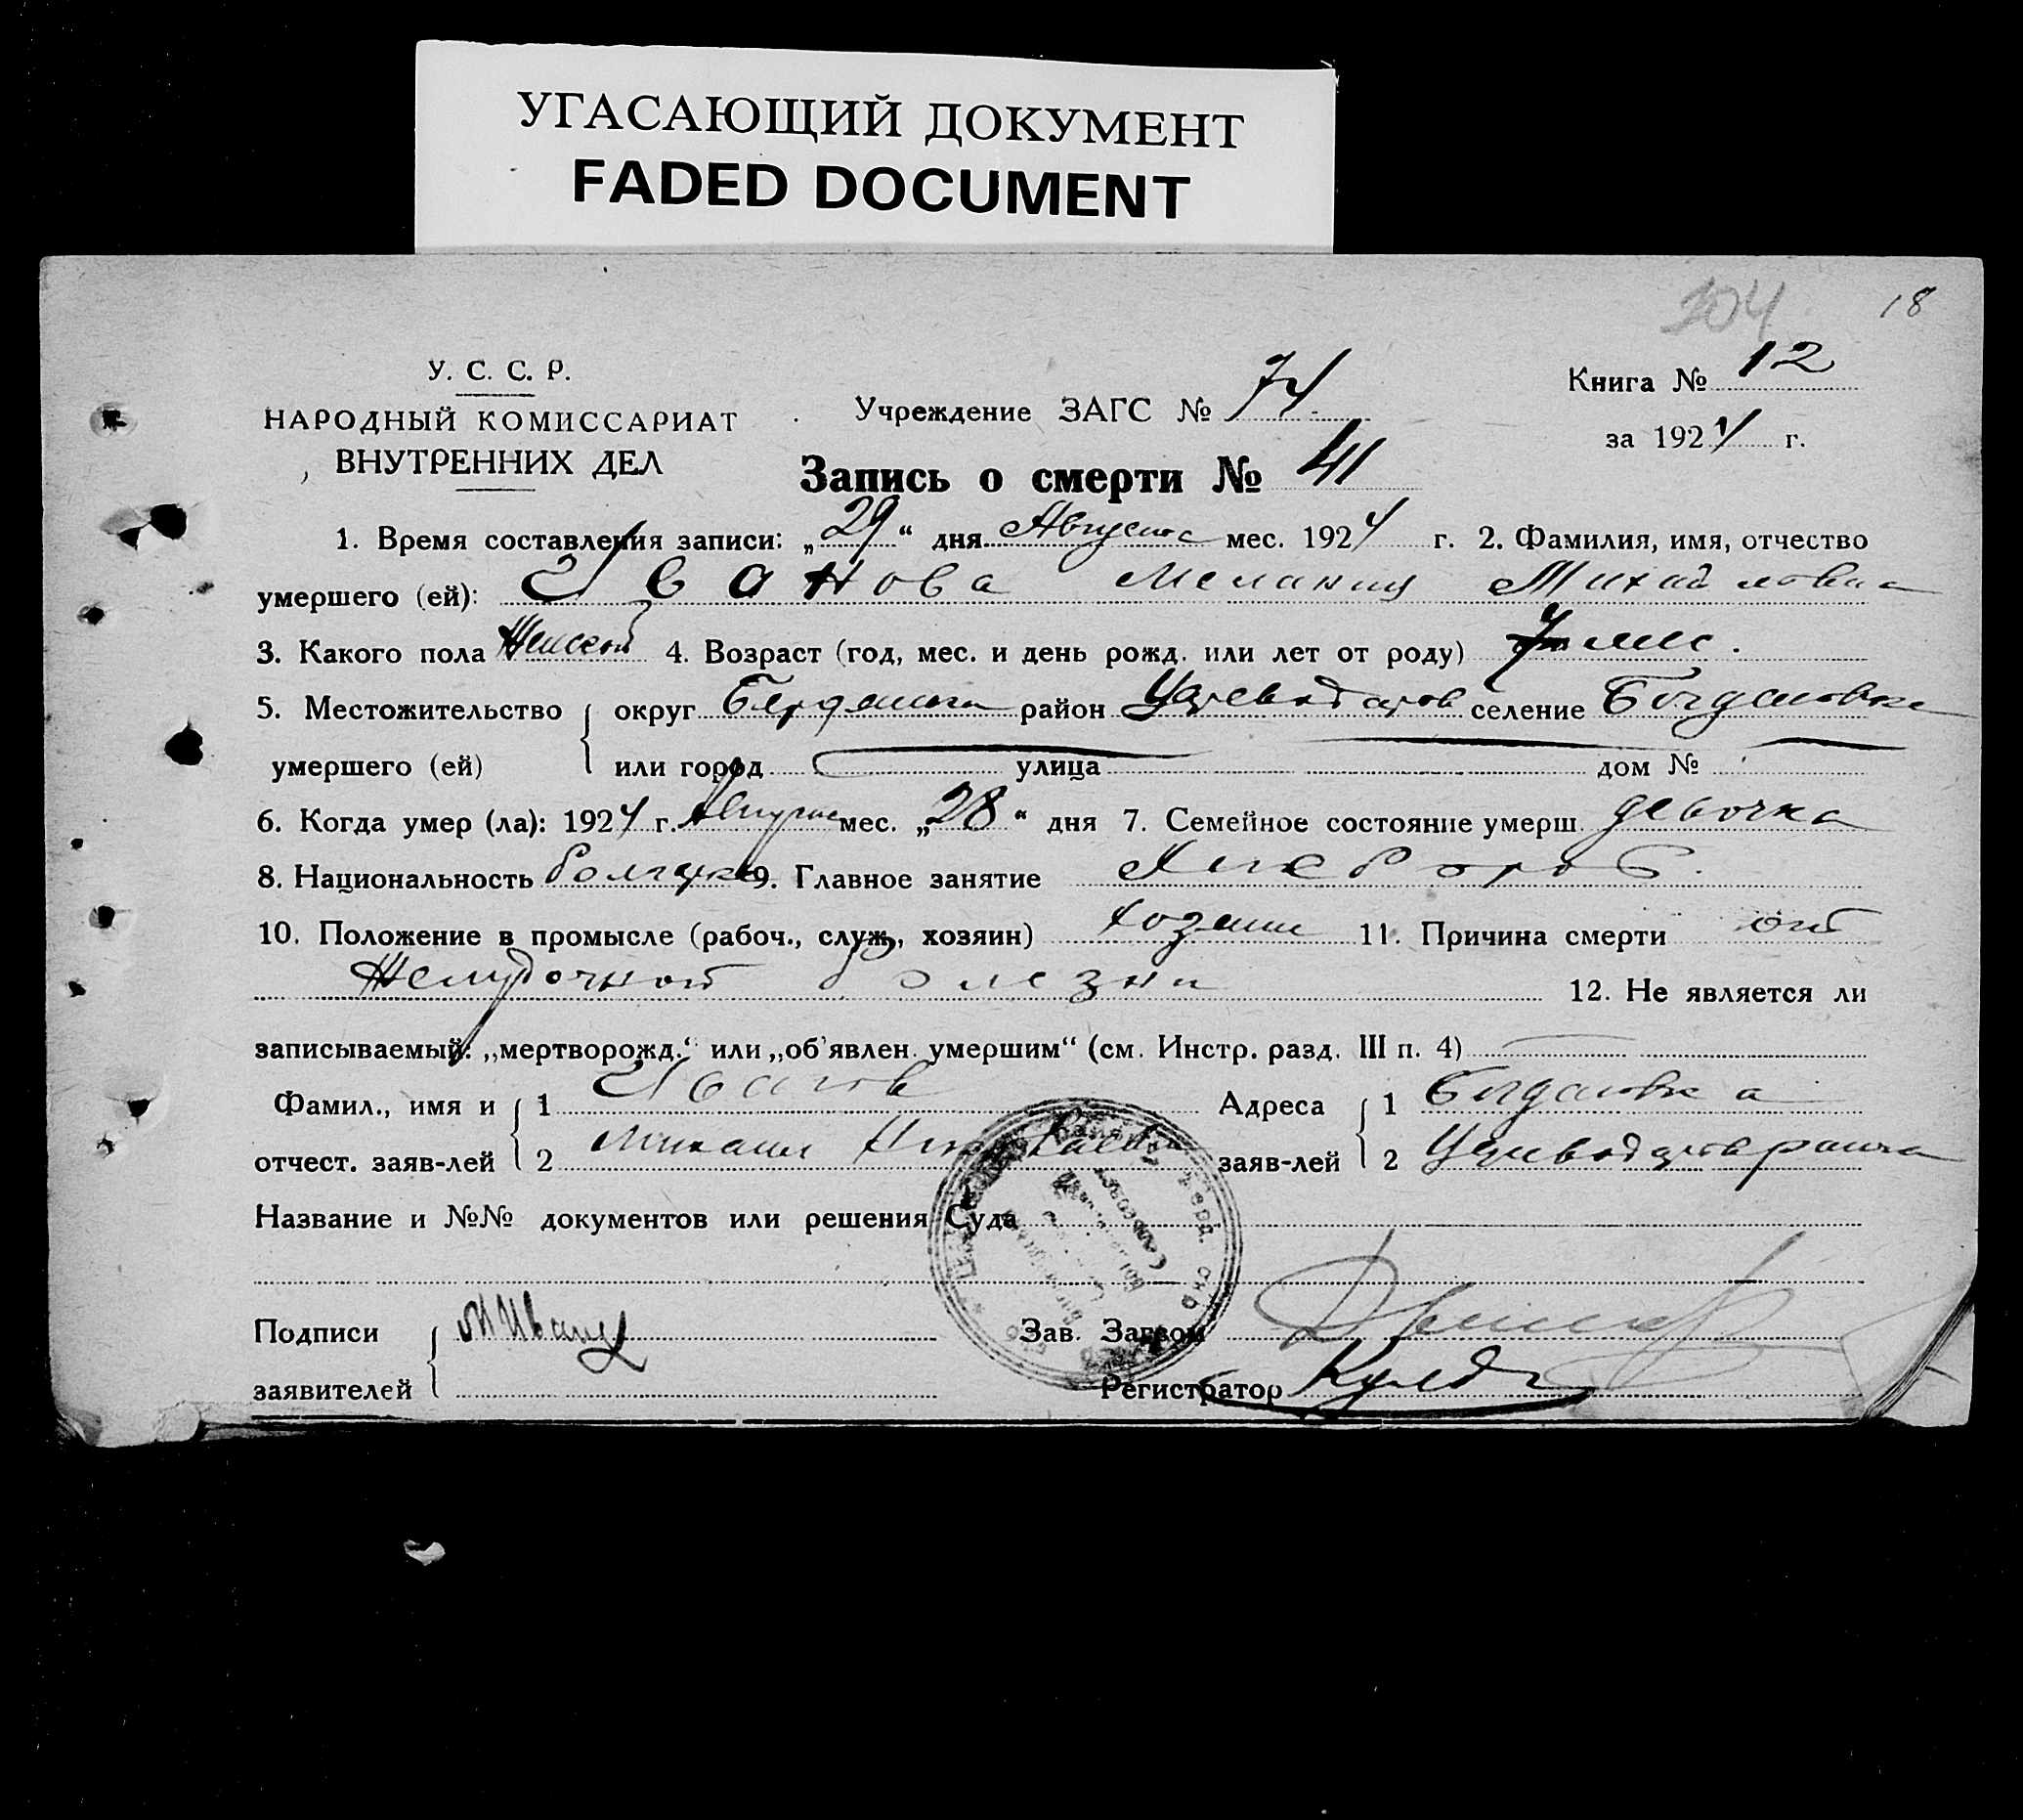 УГАСАЮЩИЙ ДОКУМЕНТ
FADED DOCUMENT
104 18
У. С. С. Р.
НАРОДНЫЙ КОМИССАРИАТ
ВНУТРЕННИХ ДЕЛ
Учреждение ЗАГС № 74
Книга № 12
за 1924 г.
Запись о смерти № 41
1. Время составления записи: „29“ дня Августа мес. 1924 г. 2. Фамилия, имя, отчество
умершего (ей): Иванова Мелания Михайловна
3. Какого пола Женской 4. Возраст (год, мес. и день рожд. или лет от роду) мес.
5. Местожительство округ Бердянск район Цареводаров селение Богдановка
умершего (ей) или город улица дом №
6. Когда умер (ла): 1924 г. Августа мес. „28“ дня 7. Семейное состояние умерш. девочка
8. Национальность болгарка 9. Главное занятие Хлебороб.
10. Положение в промысле (рабоч., служ., хозяин) хозяин 11. Причина смерти от
Желудочной болезни 12. Не является ли
записываемый: „мертворожд.“ или „об'явлен. умершим“ (см. Инстр. разд. III п. 4)
Фамил., имя и 1 Иванов Адреса 1 Богдановка
отчест. заяв-лей 2 Михаил Николаев заяв-лей 2 Цареводаров района
Название и №№ документов или решения Суда
Подписи М Иванов Зав. Загсом
заявителей Регистратор